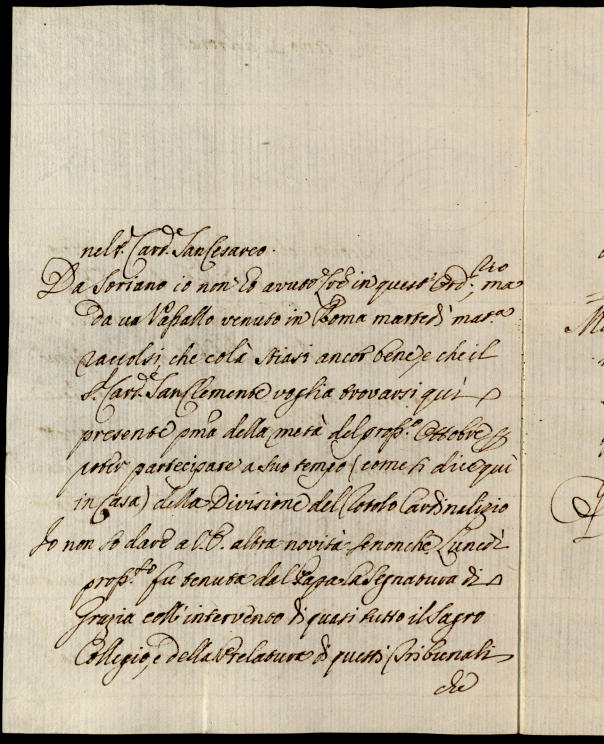 nell'. Card. San Cesareo.
Da Soriano io non ho avuto in quest' Ord.rio; ma
da un Vassallo venuto in Roma martedì mat.a
raccolsi, che colà stiasi ancor bene, e che il
S. Card. San Clemente voglia trovarsi quì
presente pma della metà del pross.o Ottobre p
poter partecipare a suo tempo (come si dice quì
in Casa) della Divisione del Rotolo Cardinalizio
Io non so dare a V.E. altra novità senonche Lunedì
pross.to fu tenuta dal Papa la Segnatura di
Grazia coll' intervento di quasi tutto il Sagro
Collegio, e della Prelatura di questi Tribunali
che